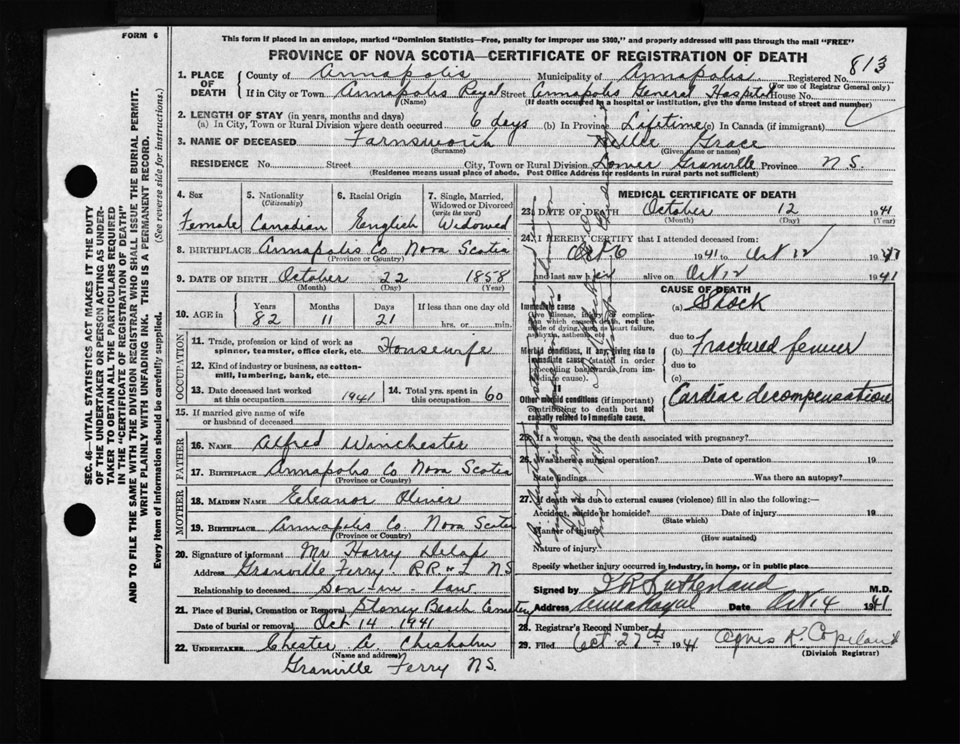 FORM 6
This form if placed in an envelope, marked "Dominion Statistics—Free, penalty for improper use $300," and properly addressed will pass through the mail "FREE"
PROVINCE OF NOVA SCOTIA—CERTIFICATE OF REGISTRATION OF DEATH
1. PLACE OF DEATH County of Annapolis Municipality of Annapolis Registered No. 813
(For use of Registrar General only)
If in City or Town Annapolis Royal Street Annapolis General Hospital House No.
(Name) (If death occurred in a hospital or institution, give the name instead of street and number)
2. LENGTH OF STAY (in years, months and days)
(a) In City, Town or Rural Division where death occurred 6 days (b) In Province Lifetime (c) In Canada (if immigrant)
3. NAME OF DECEASED Farnsworth Grace
(Surname) (Given name or names)
RESIDENCE No. Street City, Town or Rural Division Lower Granville Province N.S.
(Residence means usual place of abode. Post Office Address for residents in rural parts not sufficient)
4. Sex Female
5. Nationality (Citizenship) Canadian
6. Racial Origin English
7. Single, Married, Widowed or Divorced (write the word) Widowed
8. BIRTHPLACE Annapolis Co Nova Scotia
(Province or Country)
9. DATE OF BIRTH October 22 1858
(Month) (Day) (Year)
10. AGE Years 82 Months 11 Days 21 If less than one day old
hrs. or min.
OCCUPATION
11. Trade, profession or kind of work as spinner, teamster, office clerk, etc. Housewife
12. Kind of industry or business, as cotton-mill, lumbering, bank, etc.
13. Date deceased last worked at this occupation 1941
14. Total yrs. spent in this occupation 60
15. If married give name of wife or husband of deceased
FATHER
16. NAME Alfred Winchester
17. BIRTHPLACE Annapolis Co Nova Scotia
(Province or Country)
MOTHER
18. MAIDEN NAME Eleanor Oliver
19. BIRTHPLACE Annapolis Co. Nova Scotia
(Province or Country)
20. Signature of informant Mr Harry Delap
Address Granville Ferry R.R. # 1 N S
Relationship to deceased Son-in-law
21. Place of Burial, Cremation or Removal Stoney Beach Cemetery
Date of burial or removal Oct 14 1941
22. UNDERTAKER Chester A. Chisholm
(Name and address)
Granville Ferry N.S.
MEDICAL CERTIFICATE OF DEATH
23. DATE OF DEATH October 12 1941
(Month) (Day) (Year)
24. I HEREBY CERTIFY that I attended deceased from:
Oct 6 1941 to Oct 12 1941
and last saw her alive on Oct 12 1941
CAUSE OF DEATH
Immediate cause
(a) Shock
due to
Morbid conditions, if any, giving rise to immediate cause (stated in order proceeding backwards from immediate cause).
(b) Fractured femur
due to
(c)
Other morbid conditions (if important) contributing to death but not causally related to immediate cause.
Cardiac decompensation
25. If a woman, was the death associated with pregnancy?
26. Was there a surgical operation? Date of operation 19
State findings Was there an autopsy?
27. If death was due to external causes (violence) fill in also the following:—
Accident, suicide or homicide? Date of injury 19
(State which)
Manner of injury
(How sustained)
Nature of injury
Specify whether injury occurred in industry, in home, or in public place
Signed by Sutherland M.D.
Address Anna Royal Date Oct 14 1941
28. Registrar's Record Number
29. Filed Oct 27th 1941 Agnes Copeland
(Division Registrar)
SEC. 46—VITAL STATISTICS ACT MAKES IT THE DUTY
OF THE UNDERTAKER OR PERSON ACTING AS UNDER-
TAKER TO OBTAIN ALL THE PARTICULARS REQUIRED
IN THE "CERTIFICATE OF REGISTRATION OF DEATH"
AND TO FILE THE SAME WITH THE DIVISION REGISTRAR WHO SHALL ISSUE THE BURIAL PERMIT.
WRITE PLAINLY WITH UNFADING INK. THIS IS A PERMANENT RECORD.
Every item of information should be carefully supplied. (See reverse side for instructions.)